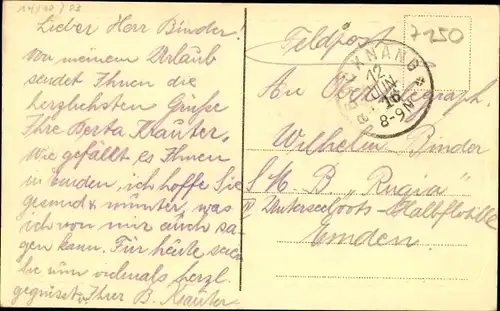 14/10/02
Lieber Herr Binder!
Von meinem Urlaub
sendet Ihnen die
herzlichsten Grüße
Ihre Berta Krauter.
Wie gefällt es Ihnen
in Emden, ich hoffe Sie
gesund & munter, was
ich von mir auch sa-
gen kann. Für heute seien
Sie nun vielmals herzl.
gegrüßt, Ihrer B. Krauter
Feldpost
7250
BACKNANG
12 JUN 16
8-9N
An Obertelegraph.
Wilhelm Binder
S. M. B. „Rugia"
II Unterseeboots-Halbflotille
Emden.